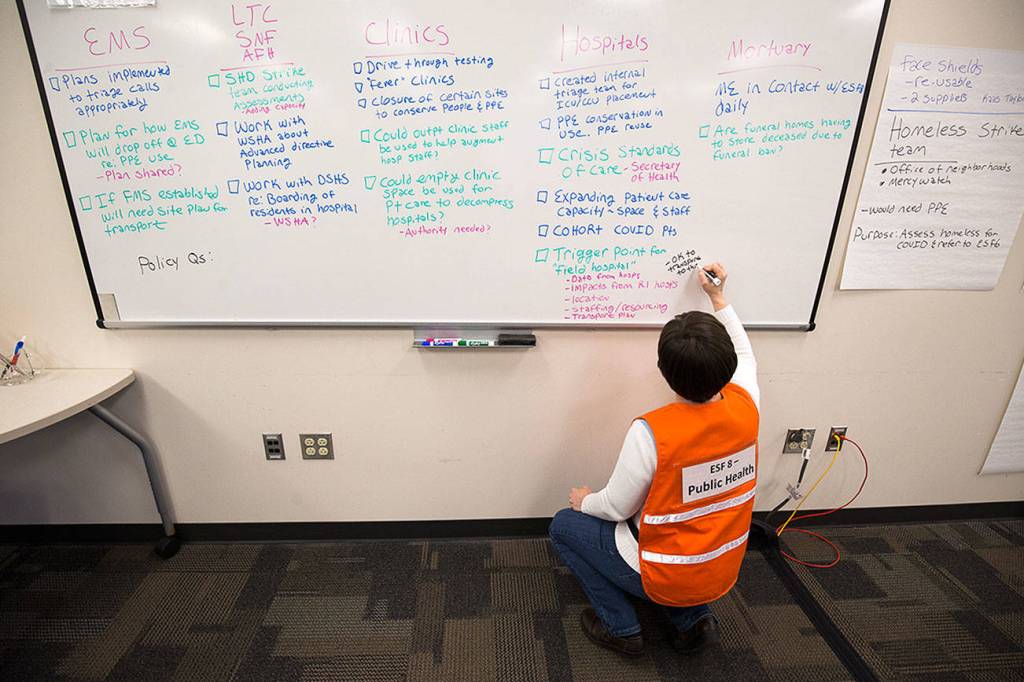 EMS
Plans implemented
to triage calls
appropriately
Plan for how EMS
will drop off @ ED
re: PPE use
- Plan shared?
If EMS established
will need site plan for
transport
Policy Qs:
LTC
SNF
AFH
SHD Strike
team conducting
Assessments
- Adding capacity
Work with
WSHA about
Advanced directive
Planning
Work with DSHS
re: Boarding of
residents in hospital
- WSHA?
Clinics
Drive through testing
"Fever" Clinics
Closure of certain sites
to conserve people & PPE
Could outpt clinic staff
be used to help augment
hosp staff?
Could empty clinic
space be used for
Pt care to decompress
hospitals?
- Authority needed?
Hospitals
Created internal
triage team for
ICU/CCU placement
PPE conservation in
use. PPE reuse
Crisis Standards
of Care - Secretary
of Health
Expanding Patient care
Capacity - Space & Staff
COHORT COVID Pts
Trigger point for
"field hospital"
- Data from hosps
- Impacts from R1 hosps
- location
- Staffing/resourcing
- Transport Plan
- OK to
transport
to
Mortuary
ME in Contact w/
daily
Are funeral homes having
to store deceased due to
funeral ban?
Face Shields
- re-usable
- 2 Suppliers
Homeless Strike
team
• Office of neighborhoods
• Mercy watch
- Would need PPE
Purpose: Assess homeless for
COVID & refer to ESF6
ESF 8 –
Public Health